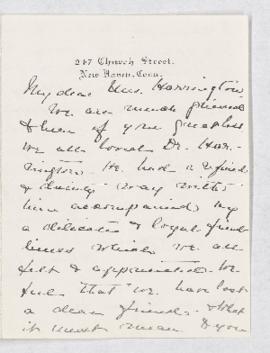 247 Church Street.
New Haven, Conn.
My dear Mrs. Harrington,
We are much grieved
to hear of your great loss
we all loved Dr. Har-
rington. He had a refined
& dainty way with
him accompanied by
a delicate & loyal friend
liness which we all
felt & appreciated. We
feel that we have lost
a dear friend & what
it must mean to you